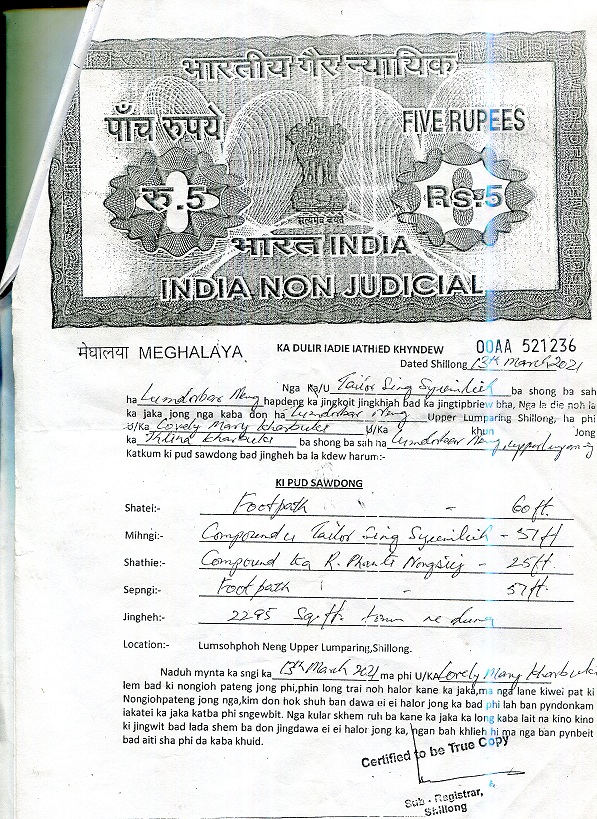 भारतीय गैर न्यायिक
पाँच रुपये
FIVE RUPEES
रु.5
Rs.5
सत्यमेव जयते
भारत INDIA
INDIA NON JUDICIAL
मेघालया MEGHALAYA
00AA 521236
KA DULIR IADIE IATHIED KHYNDEW
Dated Shillong 13th March 2021
Nga Ka/U Tailor Sing Syiemlieh ba shong ba sah
ha Lumdorbar Neng hapdeng ka jingkoit jingkhiah bad ka jingtipbriew bha, Nga la die noh la
ka jaka jong nga kaba don ha Lumdorbar Neng Upper Lumparing Shillong, ha phi
U/Ka Lovely Mary Kharbuki U/Ka khun Jong
ka Thlina Kharbuki ba shong ba sah ha Lumdorbar Neng, upper Lumparing
Katkum ki pud sawdong bad jingheh ba la kdew harum:-
KI PUD SAWDONG
Shatei:- Footpath - 60 ft.
Mihngi:- Compound u Tailor Sing Syiemlieh - 51 ft
Shathie:- Compound ka R. Phanti Nongsiej - 25 ft.
Sepngi:- Footpath - 57 ft.
Jingheh:- 2295 Sq.ft.
Location:- Lumsohphoh Neng Upper Lumparing,Shillong.
Naduh mynta ka sngi ka 13th March 2021 ma phi U/KA Lovely Mary Kharbuki
lem bad ki nongioh pateng jong phi,phin long trai noh halor kane ka jaka,ma nga lane kiwei pat ki
Nongiohpateng jong nga,kim don hok shuh ban leh ei ei halor jong ka bad phi lah ban pyndonkam
iakatei ka jaka katba phi sngewbit. Nga kular skhem ruh ba kane ka jaka ka long kaba lait na kino kino
ki jingwit bad lada shem ba don jingdawa ei ei halor jong ka, ngan bah khlieh hi ma nga ban pynbeit
bad aiti sha phi da kaba khuid.
Certified to be True Copy
Sub - Registrar,
Shillong